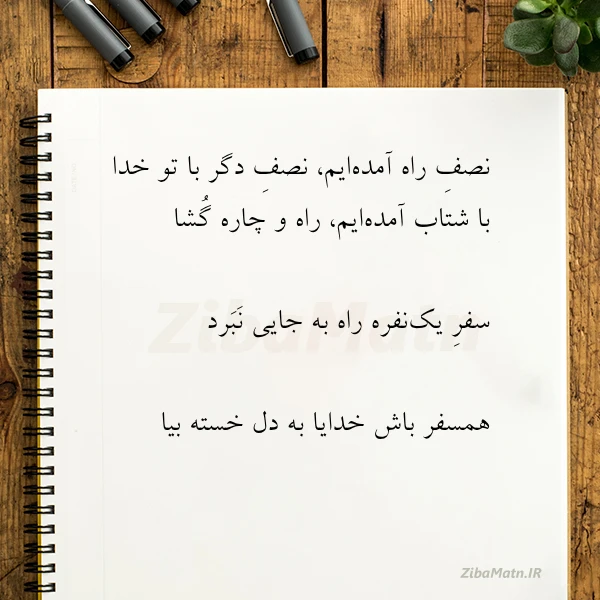 نصفِ راه آمده‌ایم، نصفِ دگر با تو خدا
با شتاب آمده‌ایم، راه و چاره گُشا
سفرِ یک‌نفره راه به جایی نَبَرد
همسفر باش خدایا به دل خسته بیا
ZibaMatn
ZibaMatn.IR